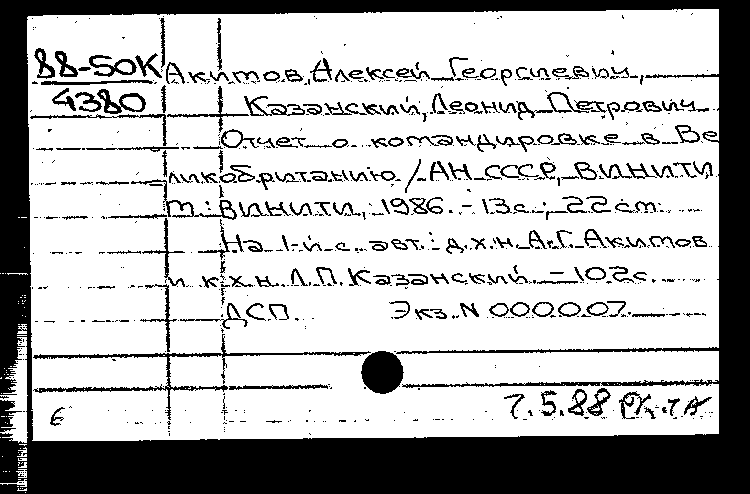 88-50К Акимов, Алексей Георгиевич,
4380 Казанский, Леонид Петрович
Отчет о командировке в Ве
ликобританию / АН СССР, ВИНИТИ
m: ВИНИТИ, 1986. - 13с.; 22 cm.
На 1-й с. авт.: д.х.н. А.Г. Акимов
и к.х.н. Л.П. Казанский. - 102с.
ДСП. Экз. N 0000.07.
6 7.5.88